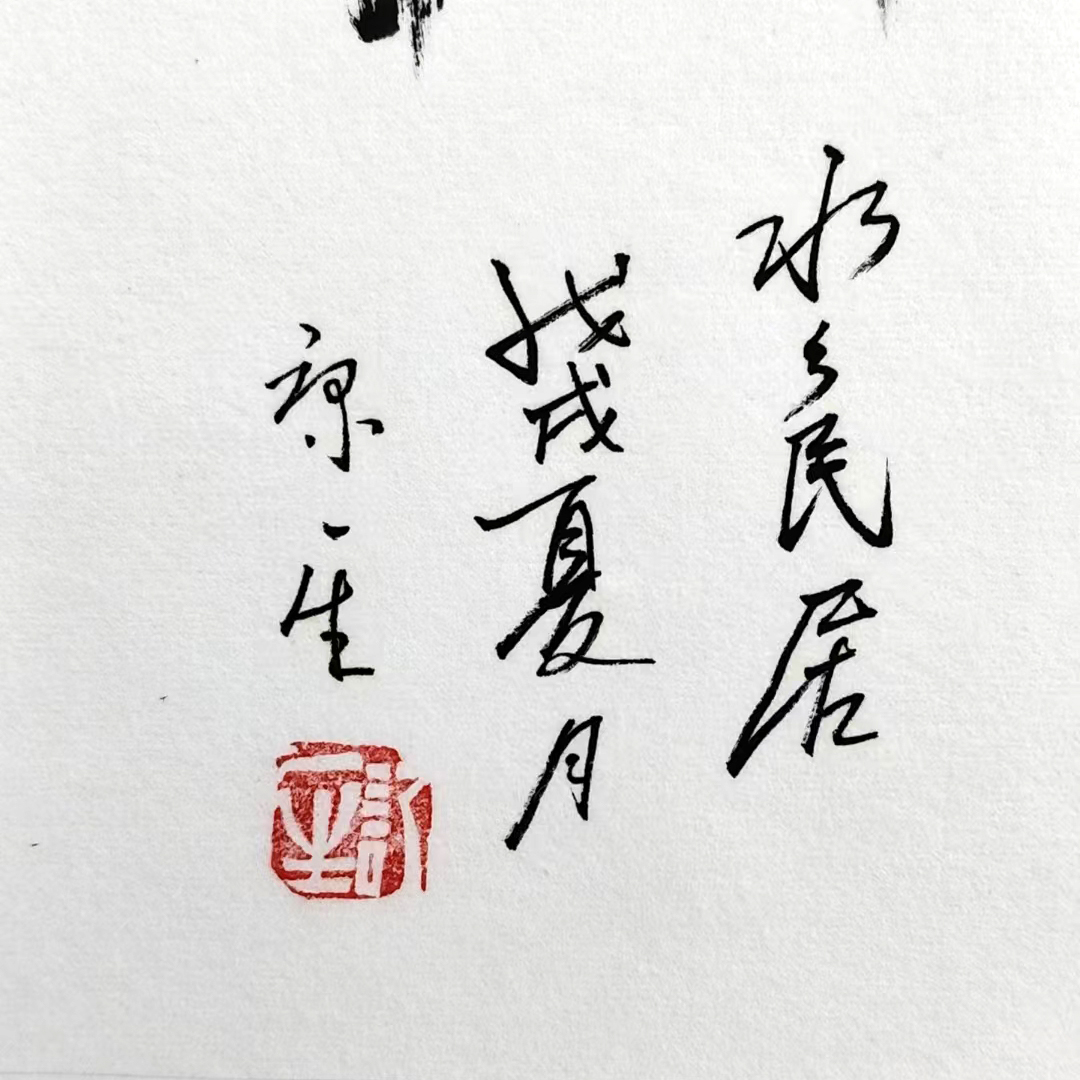 水乡民居
戊戌夏月
一生